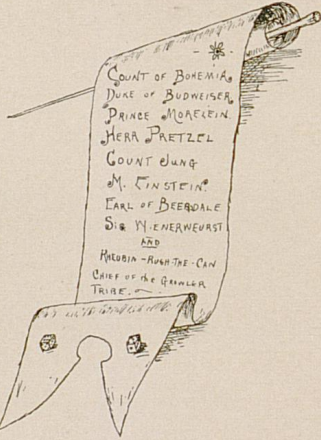 Count of Bohemia
Duke of Budweiser
Prince Morelein
Herr Pretzel
Count Jung
M. Einstein
Earl of Beerdale
Sir W-enerweurst
and
Kheobia-Rush-the-Can
Chief of the Growler
Tribe.